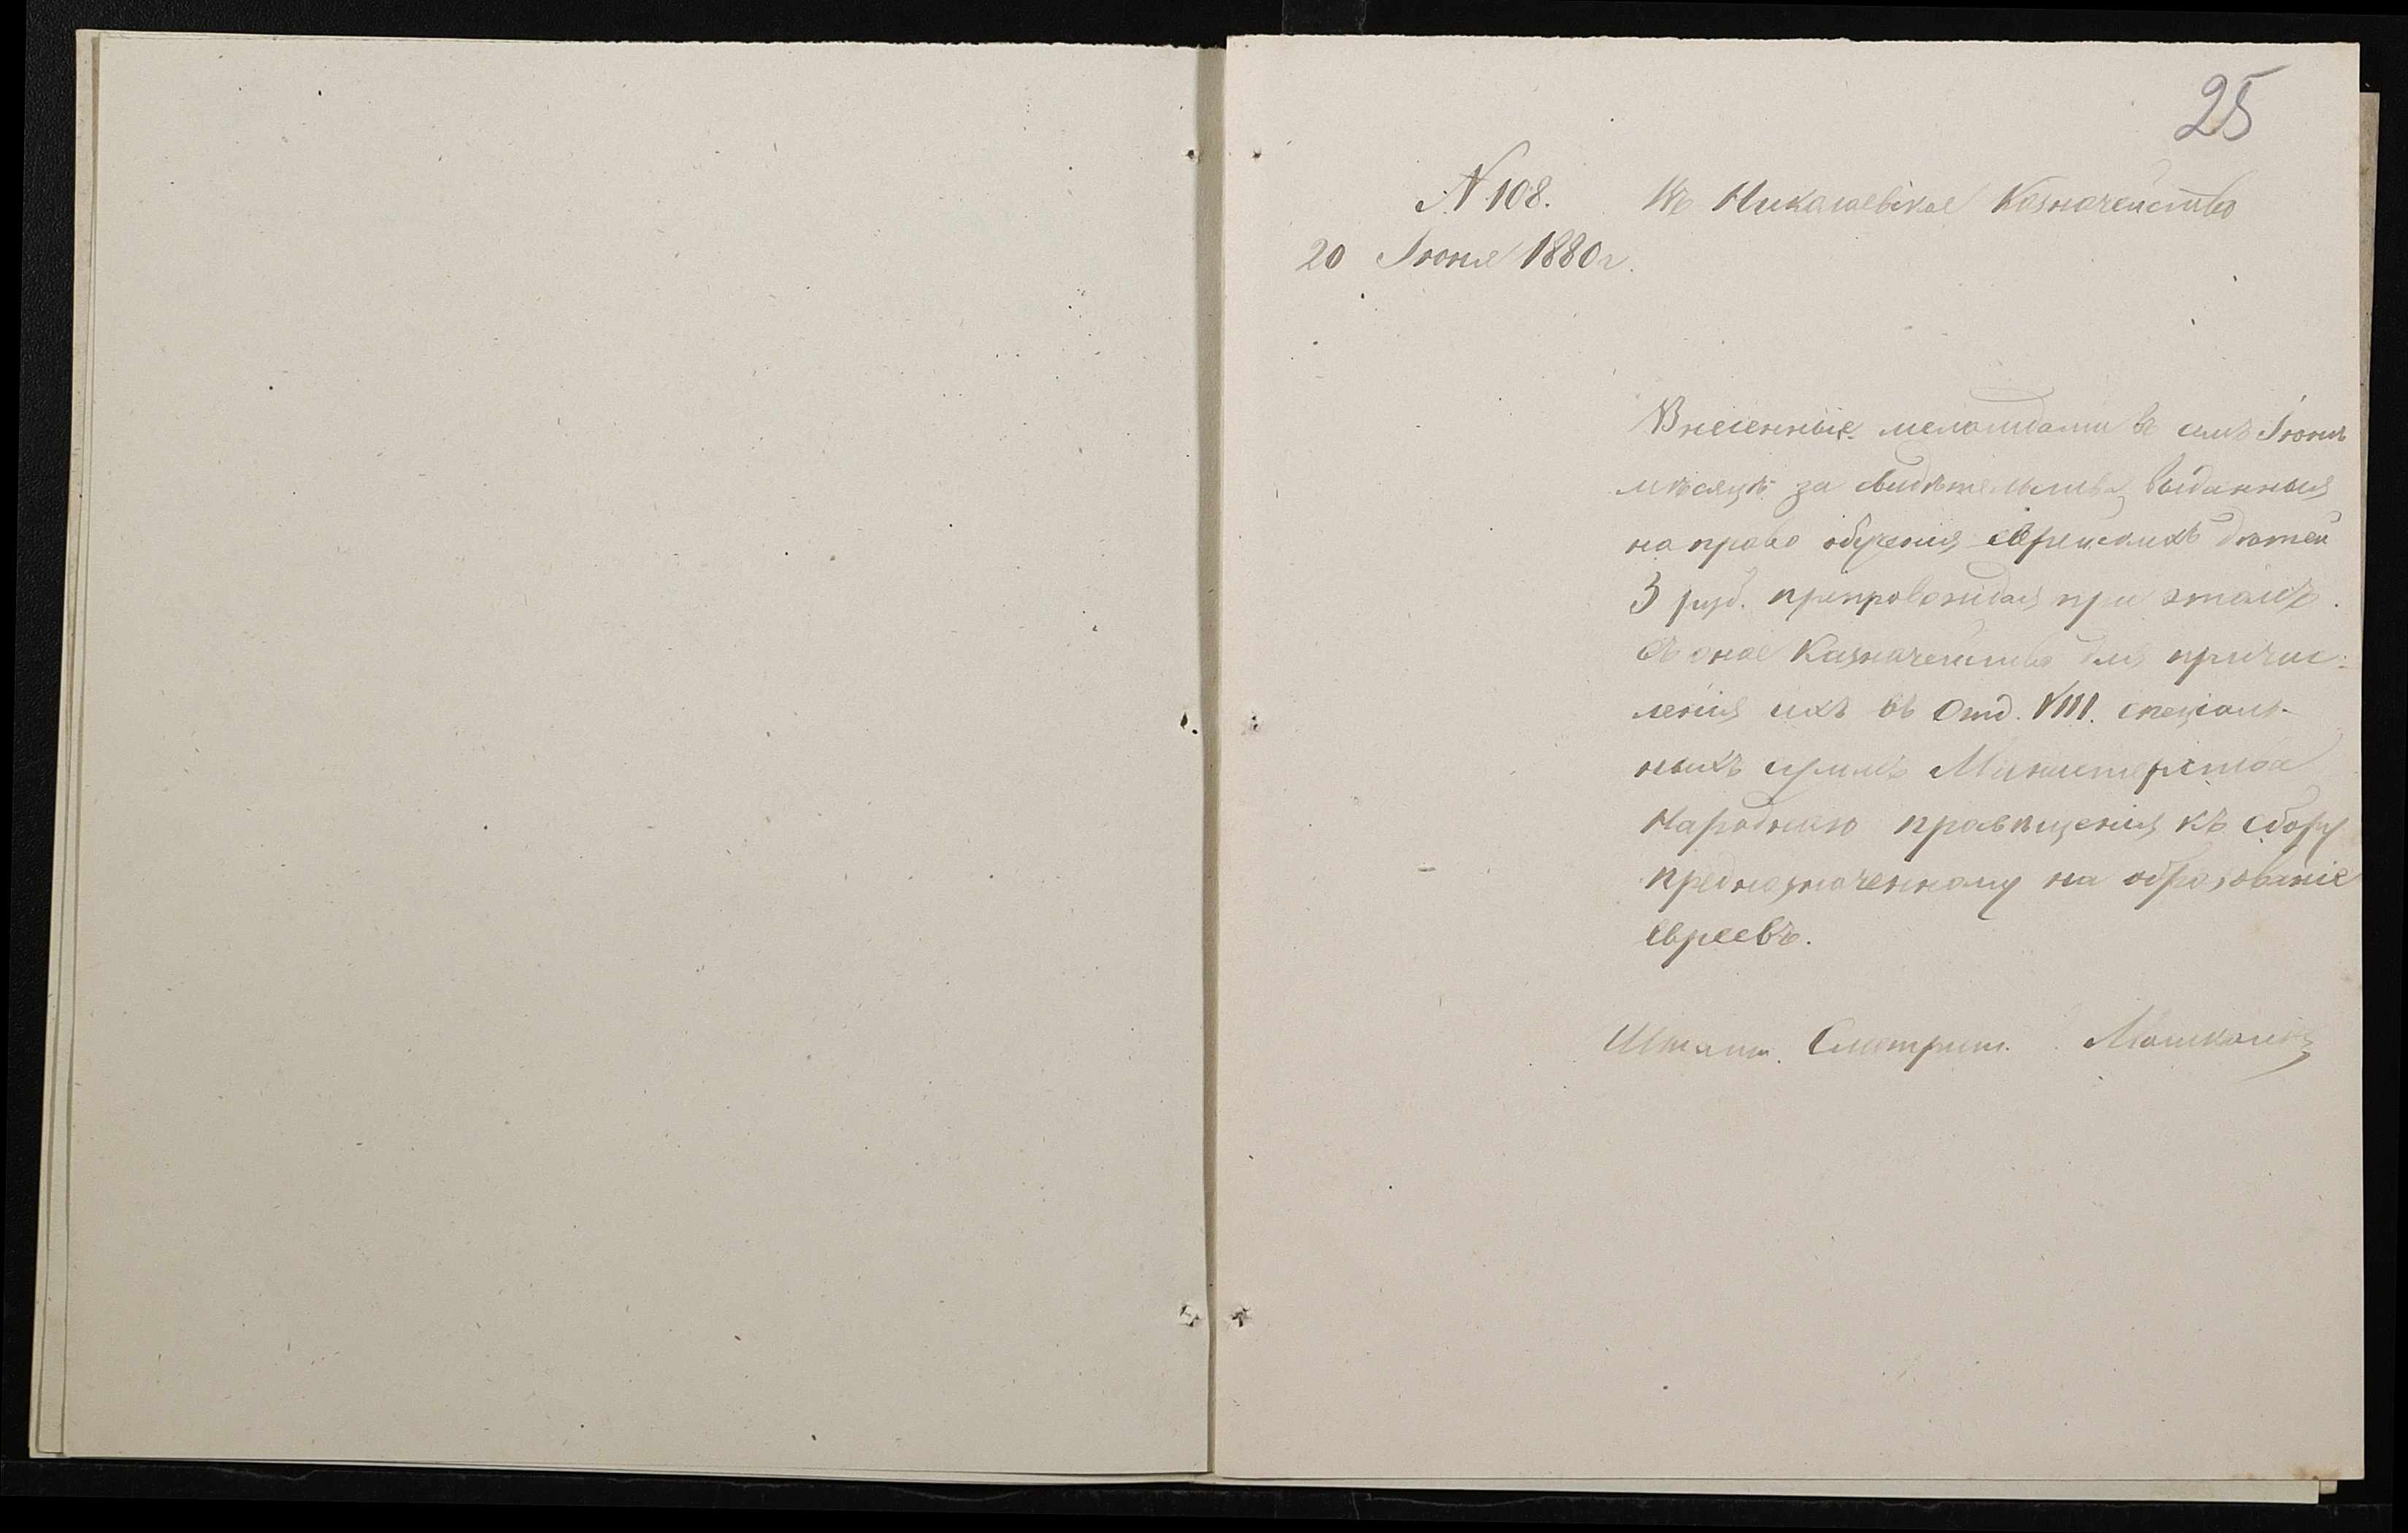 25
N 108. Въ Николаевское Казначейство
20 Іюня 1880 г.
Внесенные меламдами въ семъ Іюнѣ
мѣсяцѣ за свидѣтельства, выданныя
на право обученія еврейскихъ дѣтей
3 руб. препровождая при этомъ
въ оное Казначейство для причис-
ленія ихъ въ Отд. VIII. спеціаль-
ныхъ суммъ Министерства
Народнаго просвѣщенія къ сбору
предназначенному на образованіе
евреевъ.
Штатн. Смотрит.